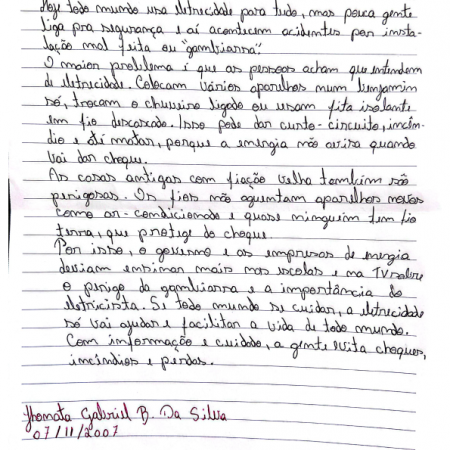 Hoje todo mundo usa eletrecidade para tudo, mas pouca gente
liga pra segurança e aí acontecem acidentes por insta-
lação mal feita ou "gambiarra".
O maior problema é que as pessoas acham que entendem
de eletrecidade. Colocam vários aparelhos num benjamim
só, trocam o chuveiro ligado ou usam fita isolante
em fio descascado. Isso pode dar curto-circuito, incên-
dio e até matar, porque a energia não avisa quando
vai dar choque.
As casas antigas com fiação velha também são
perigosas. Os fios não aguentam aparelhos novos
como ar-condicionado e quase ninguém tem fio
terra, que protege do choque.
Por isso, o governo e as empresas de energia
deviam ensinar mais nas escolas e na TV sobre
o perigo da gambiarra e a importância do
eletricista. Se todo mundo se cuidar, a eletrecidade
só vai ajudar e facilitar a vida de todo mundo.
Com informação e cuidado, a gente evita choques,
incêndios e perdas.
Jhonata Gabriel B. Da Silva
07/11/2007